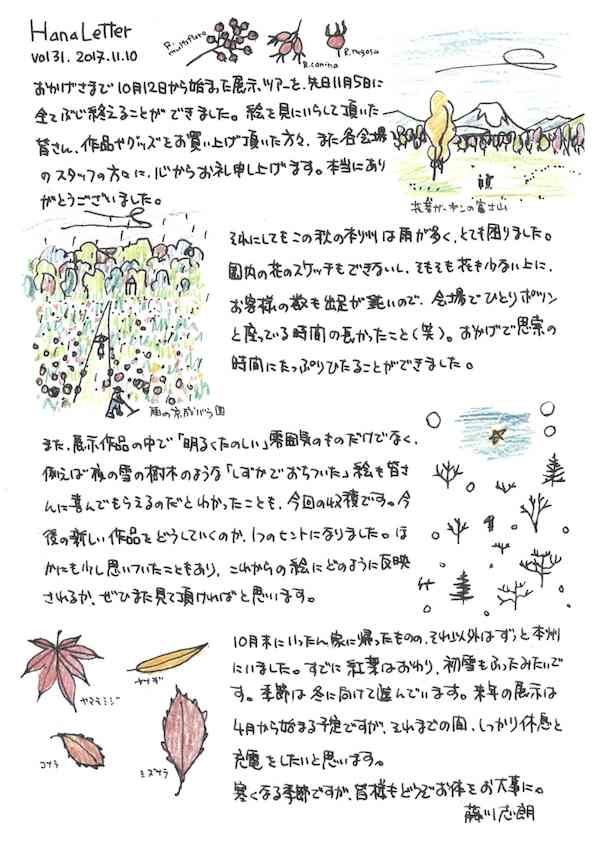 Hana Letter
vol 31. 2017.11.10
R. multiflora
R. canina
R. rugosa
おかげさまで10月12日から始まった展示ツアーを、先日11月5日に
全てぶじ終えることができました。絵を見にいらして頂いた
皆さん、作品やグッズをお買い上げ頂いた方々、また各会場
のスタッフの方々に、心からお礼申し上げます。本当にあり
がとうございました。
花夢ガーデンの富士山
それにしてもこの秋の本州は雨が多く、とても困りました。
園内の花のスケッチもできないし、そもそも花も少ない上に、
お客様の数も出足が鈍いので、会場でひとりポツン
と座っている時間の長かったこと(笑)。おかげで思索の
時間にたっぷりひたることができました。
雨の京成バラ園
また、展示作品の中で「明るくたのしい」雰囲気のものだけでなく、
例えば夜の雪の樹木のような「しずかでおちついた」絵も皆さ
んに喜んでもらえるのだとわかったことも、今回の収穫です。今
後の新しい作品をどうしていくのか、1つのヒントになりました。ほ
かにも少し思いついたこともあり、これからの絵にどのように反映
されるか、ぜひまた見て頂ければと思います。
ヤマモミジ
ヤナギ
コナラ
ミズナラ
10月末にいったん家に帰ったものの、それ以外はずっと本州
にいました。すでに紅葉はおわり、初雪もふったみたいで
す。季節は冬に向けて進んでいます。来年の展示は
4月から始まる予定ですが、それまでの間、しっかり休息と
充電をしたいと思います。
寒くなる季節ですが、皆様もどうぞお体をお大事に。
藤川志朗